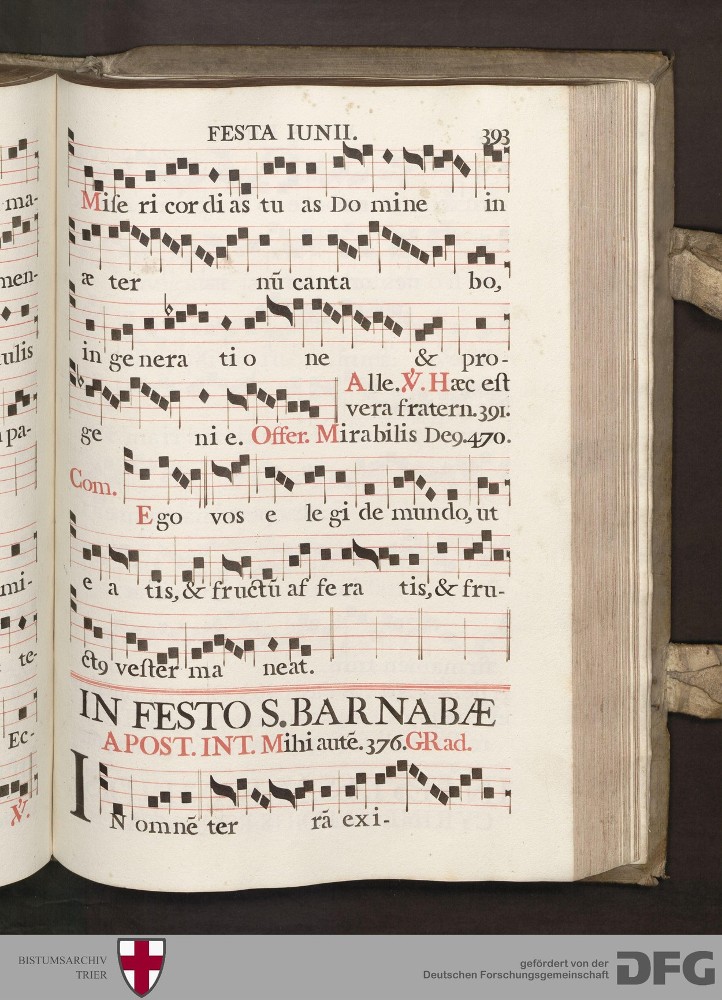 ma-
men-
ulis
pa-
mi-
te-
Ec-
℣.
FESTA IUNII. 393
Mise ri cor di as tu as Do mine in
æ ter nũ canta bo,
in ge nera ti o ne & pro-
Alle. ℣. Hæc est
vera fratern. 391.
ge ni e. Offer. Mirabilis De9. 470.
Com.
Ego vos e le gi de mundo, ut
e a tis, & fructũ af fe ra tis, & fru-
ct9 vester ma neat.
IN FESTO S. BARNABÆ
APOST. INT. Mihi autẽ. 376. GRad.
IN omnẽ ter rã exi-
BISTUMSARCHIV
TRIER
gefördert von der
Deutschen Forschungsgemeinschaft
DFG